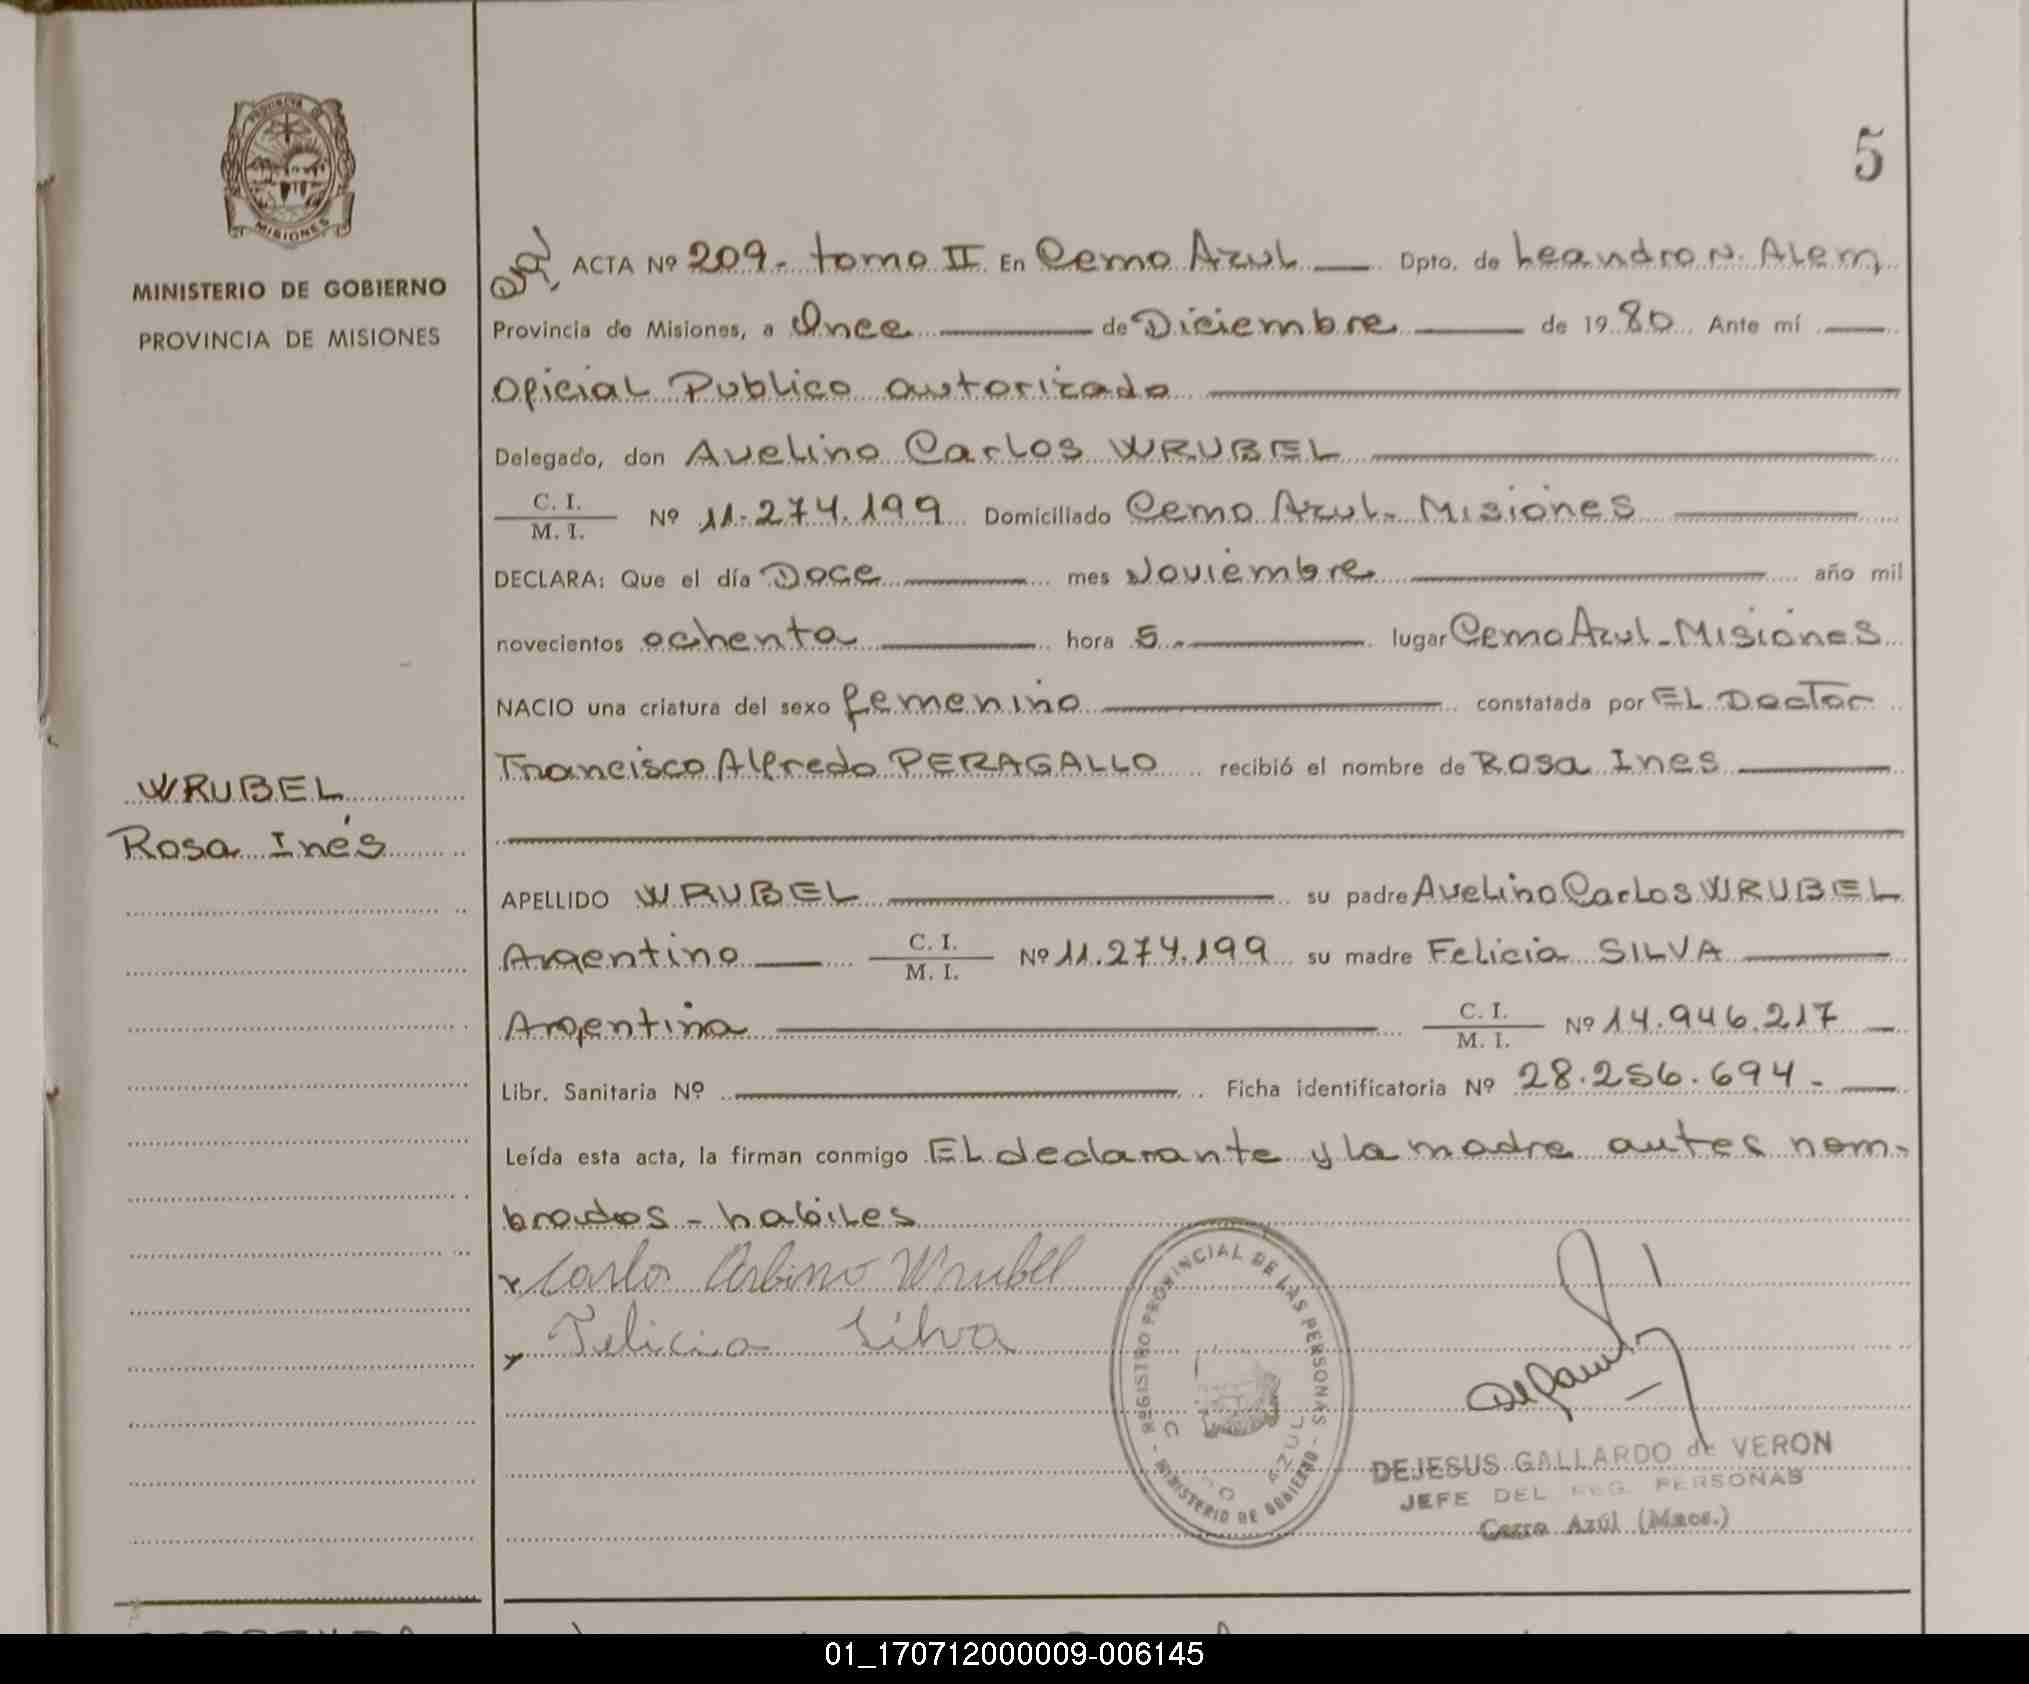 PROVINCIA DE
MISIONES
MINISTERIO DE GOBIERNO
PROVINCIA DE MISIONES
5
ACTA Nº 209.- tomo II En Cerro Azul Dpto. de Leandro N. Alem
Provincia de Misiones, a Once de Diciembre de 1980 Ante mí
Oficial Publico autorizado
Delegado, don Avelino Carlos WRUBEL
C. I.
M. I. Nº 11.274.199 Domiciliado Cerro Azul - Misiones
DECLARA: Que el día Doce mes Noviembre año mil
novecientos ochenta hora 5.- lugar Cerro Azul - Misiones
NACIO una criatura del sexo femenino constatada por EL Doctor
Francisco Alfredo PERAGALLO recibió el nombre de Rosa Ines
WRUBEL
Rosa Inés
APELLIDO WRUBEL su padre Avelino Carlos WRUBEL
Argentino C. I.
M. I. Nº 11.274.199 su madre Felicia SILVA
Argentina C. I.
M. I. Nº 14.946.217
Libr. Sanitaria Nº Ficha identificatoria Nº 28.256.694.-
Leída esta acta, la firman conmigo EL declarante y la madre antes nom-
brados - habiles
x Carlos Wrubel
x Felicia Silva
REGISTRO PROVINCIAL DE LAS PERSONAS - MINISTERIO DE GOBIERNO -
AZUL
DEJESUS GALLARDO de VERON
JEFE DEL REG. PERSONAS
Cerro Azúl (Mnes.)
01_170712000009-006145